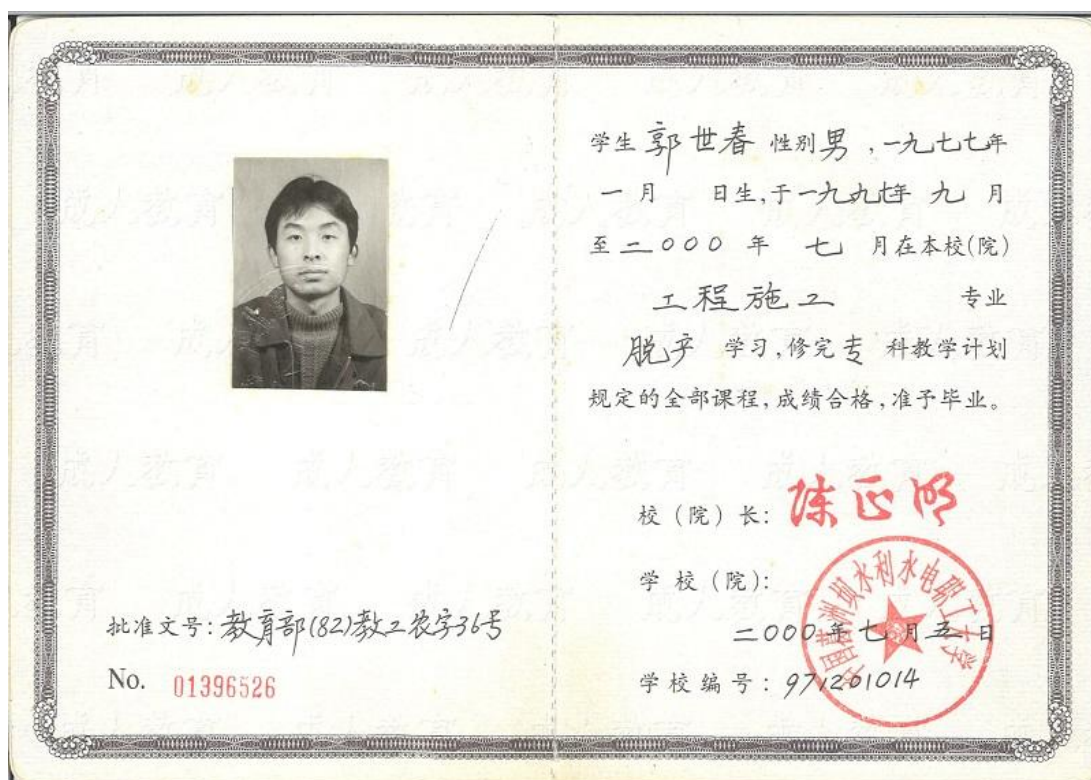 学生 郭世春 性别 男 , 一九七七年
一月 日生,于一九九七年 九 月
至 二000 年 七 月在本校(院)
工程施工 专业
脱产 学习,修完 专 科教学计划
规定的全部课程,成绩合格,准予毕业。
校(院)长: 陈正明
学校(院):
中国葛洲坝水利水电职工大学
二000年七月五日
学校编号: 971201014
批准文号: 教育部(82)教工农字36号
No. 01396526
成人教育 成人教育 成人教育 成人教育